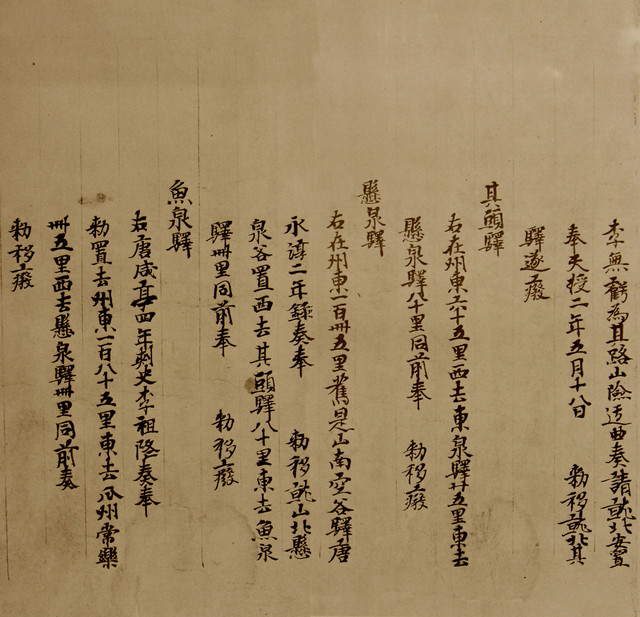 李無虧為其路山險迂曲奏請就北安置
奉天授二年五月十八日 勅移就北其
驛遂廢
其頭驛
右在州東六十五里西去東泉驛廿五里東去
懸泉驛八十里同前奉 勅移廢
懸泉驛
右在州東一百卌五里舊是山南空谷驛唐
永淳二年錄奏奉 勅移就山北懸
泉谷置西去其頭驛八十里東去魚泉
驛卌里同前奉 勅移廢
魚泉驛
右唐咸亨四年刺史李祖隆奏奉
勅置去州東一百八十五里東去瓜州常樂
卌五里西去懸泉驛卌里同前奏
勅移廢